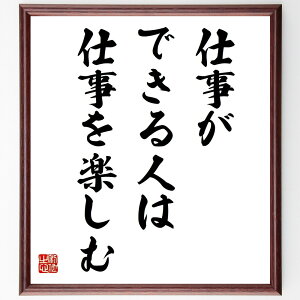 仕事が
できる人は
仕事を楽しむ